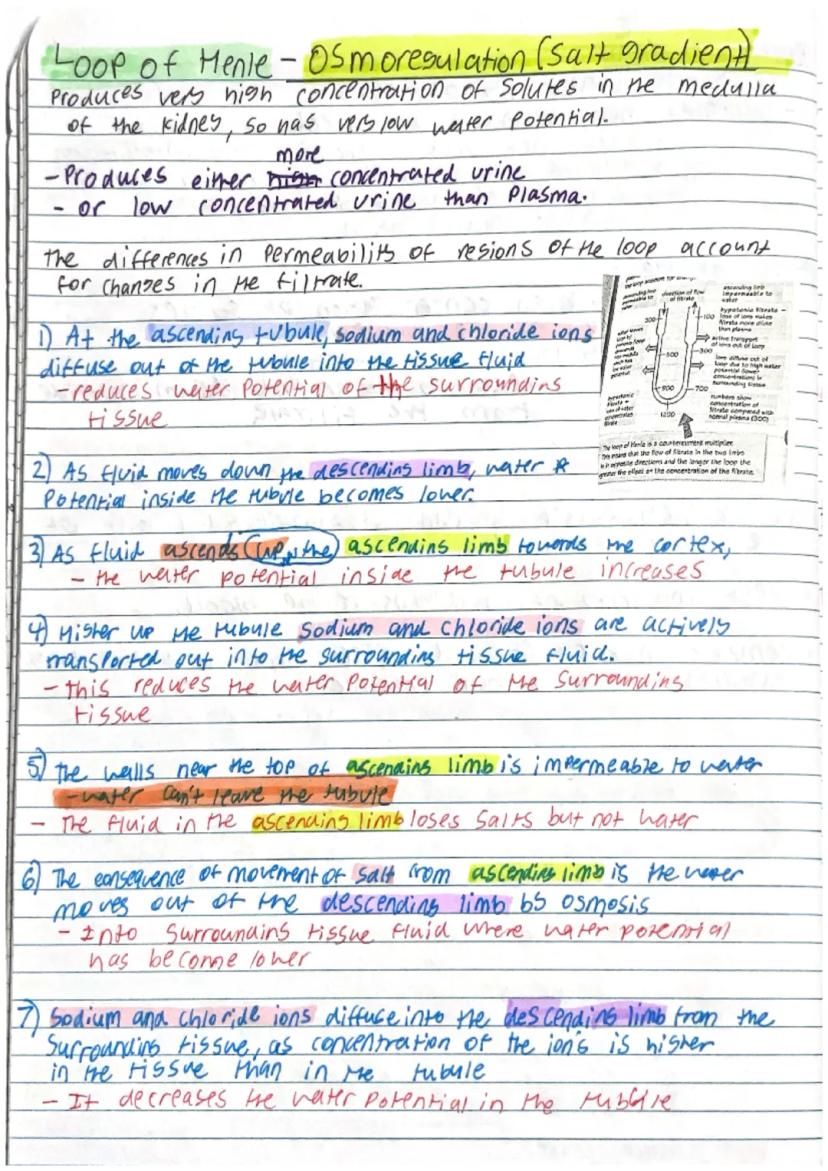 Loop of Henle - Osmoregulation (salt gradient)
Produces very high concentration of solutes in the medulla
of the kidney, so has very low water potential.
more
- Produces either high concentrated urine
- or low concentrated urine than plasma.
the differences in permeability of regions of the loop account
for changes in the filtrate.
1) At the ascending tubule, sodium and chloride ions
diffuse out of the tubule into the tissue fluid
- reduces water potential of the surrounding
tissue
direction of flow
of filtrate
ascending limb
impermeable to
water
hypotonic filtrate -
loss of ions makes
filtrate more dilute
than plasma
active transport
of ions out of loop
ions diffuse out of
loop due to high water
potential (lower
concentration) in
surrounding tissue
numbers show
concentration of
filtrate compared with
normal plasma (300)
300
100
300
600
900
700
1200
The loop of Henle is a countercurrent multiplier.
This means that the flow of filtrate in the two limbs
is in opposite directions and the longer the loop the
greater the effect on the concentration of the filtrate.
2) As fluid moves down the descending limb, water
Potential inside the tubule becomes lower.
3) As fluid ascends up the ascending limb towards the cortex,
- the water potential inside the tubule increases
4) Higher up the tubule sodium and chloride ions are actively
transported out into the surrounding tissue fluid.
- this reduces the water potential of the surrounding
tissue
5) The walls near the top of ascending limb is impermeable to water
- water can't leave the tubule
- The fluid in the ascending limb loses salts but not water
6) The consequence of movement of salt from ascending limb is the water
moves out of the descending limb by osmosis
- Into surrounding tissue fluid where water potential
has become lower
7) Sodium and chloride ions diffuse into the descending limb from the
surrounding tissue, as concentration of the ion's is higher
in the tissue than in the tubule
- It decreases the water potential in the tubule